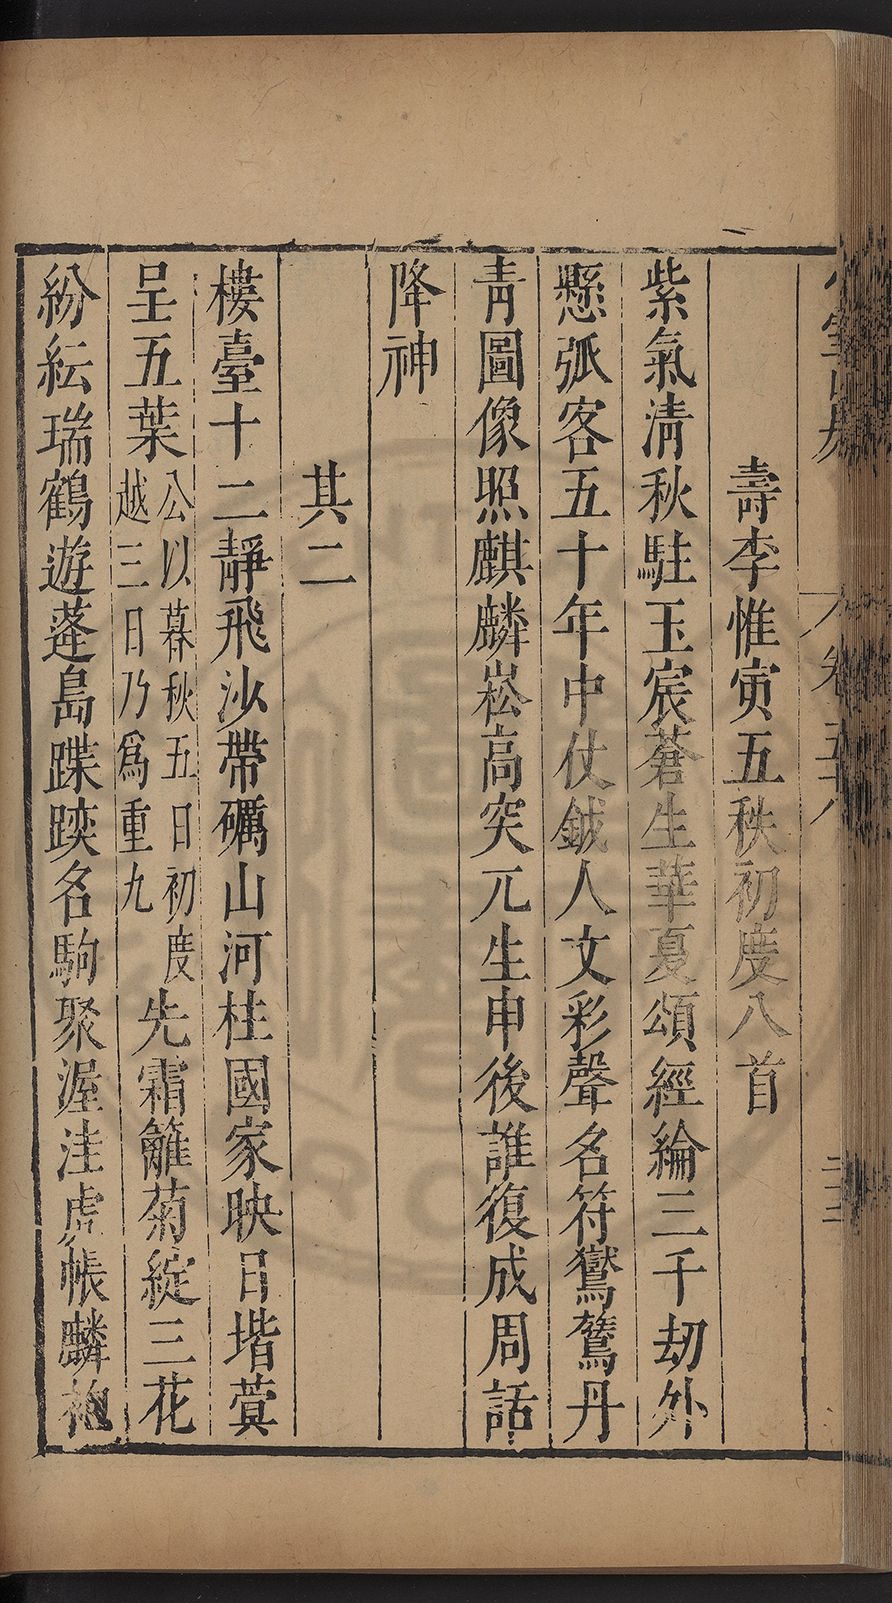 少室山房
卷五十八
二十二
壽李惟寅五秩初度八首
紫氣清秋駐玉宸蒼生華夏頌經綸三千刼外
懸弧客五十年中仗鉞人文彩聲名符鸑鷟丹
青圖像照麒麟崧高突兀生申後誰復成周話
降神
其二
樓臺十二靜飛沙帶礪山河柱國家映日堦蓂
呈五葉公以暮秋五日初度越三日乃爲重九先霜籬菊綻三花
紛紜瑞鶴遊蓬島蹀𨂐名駒聚渥洼虎帳麟袍